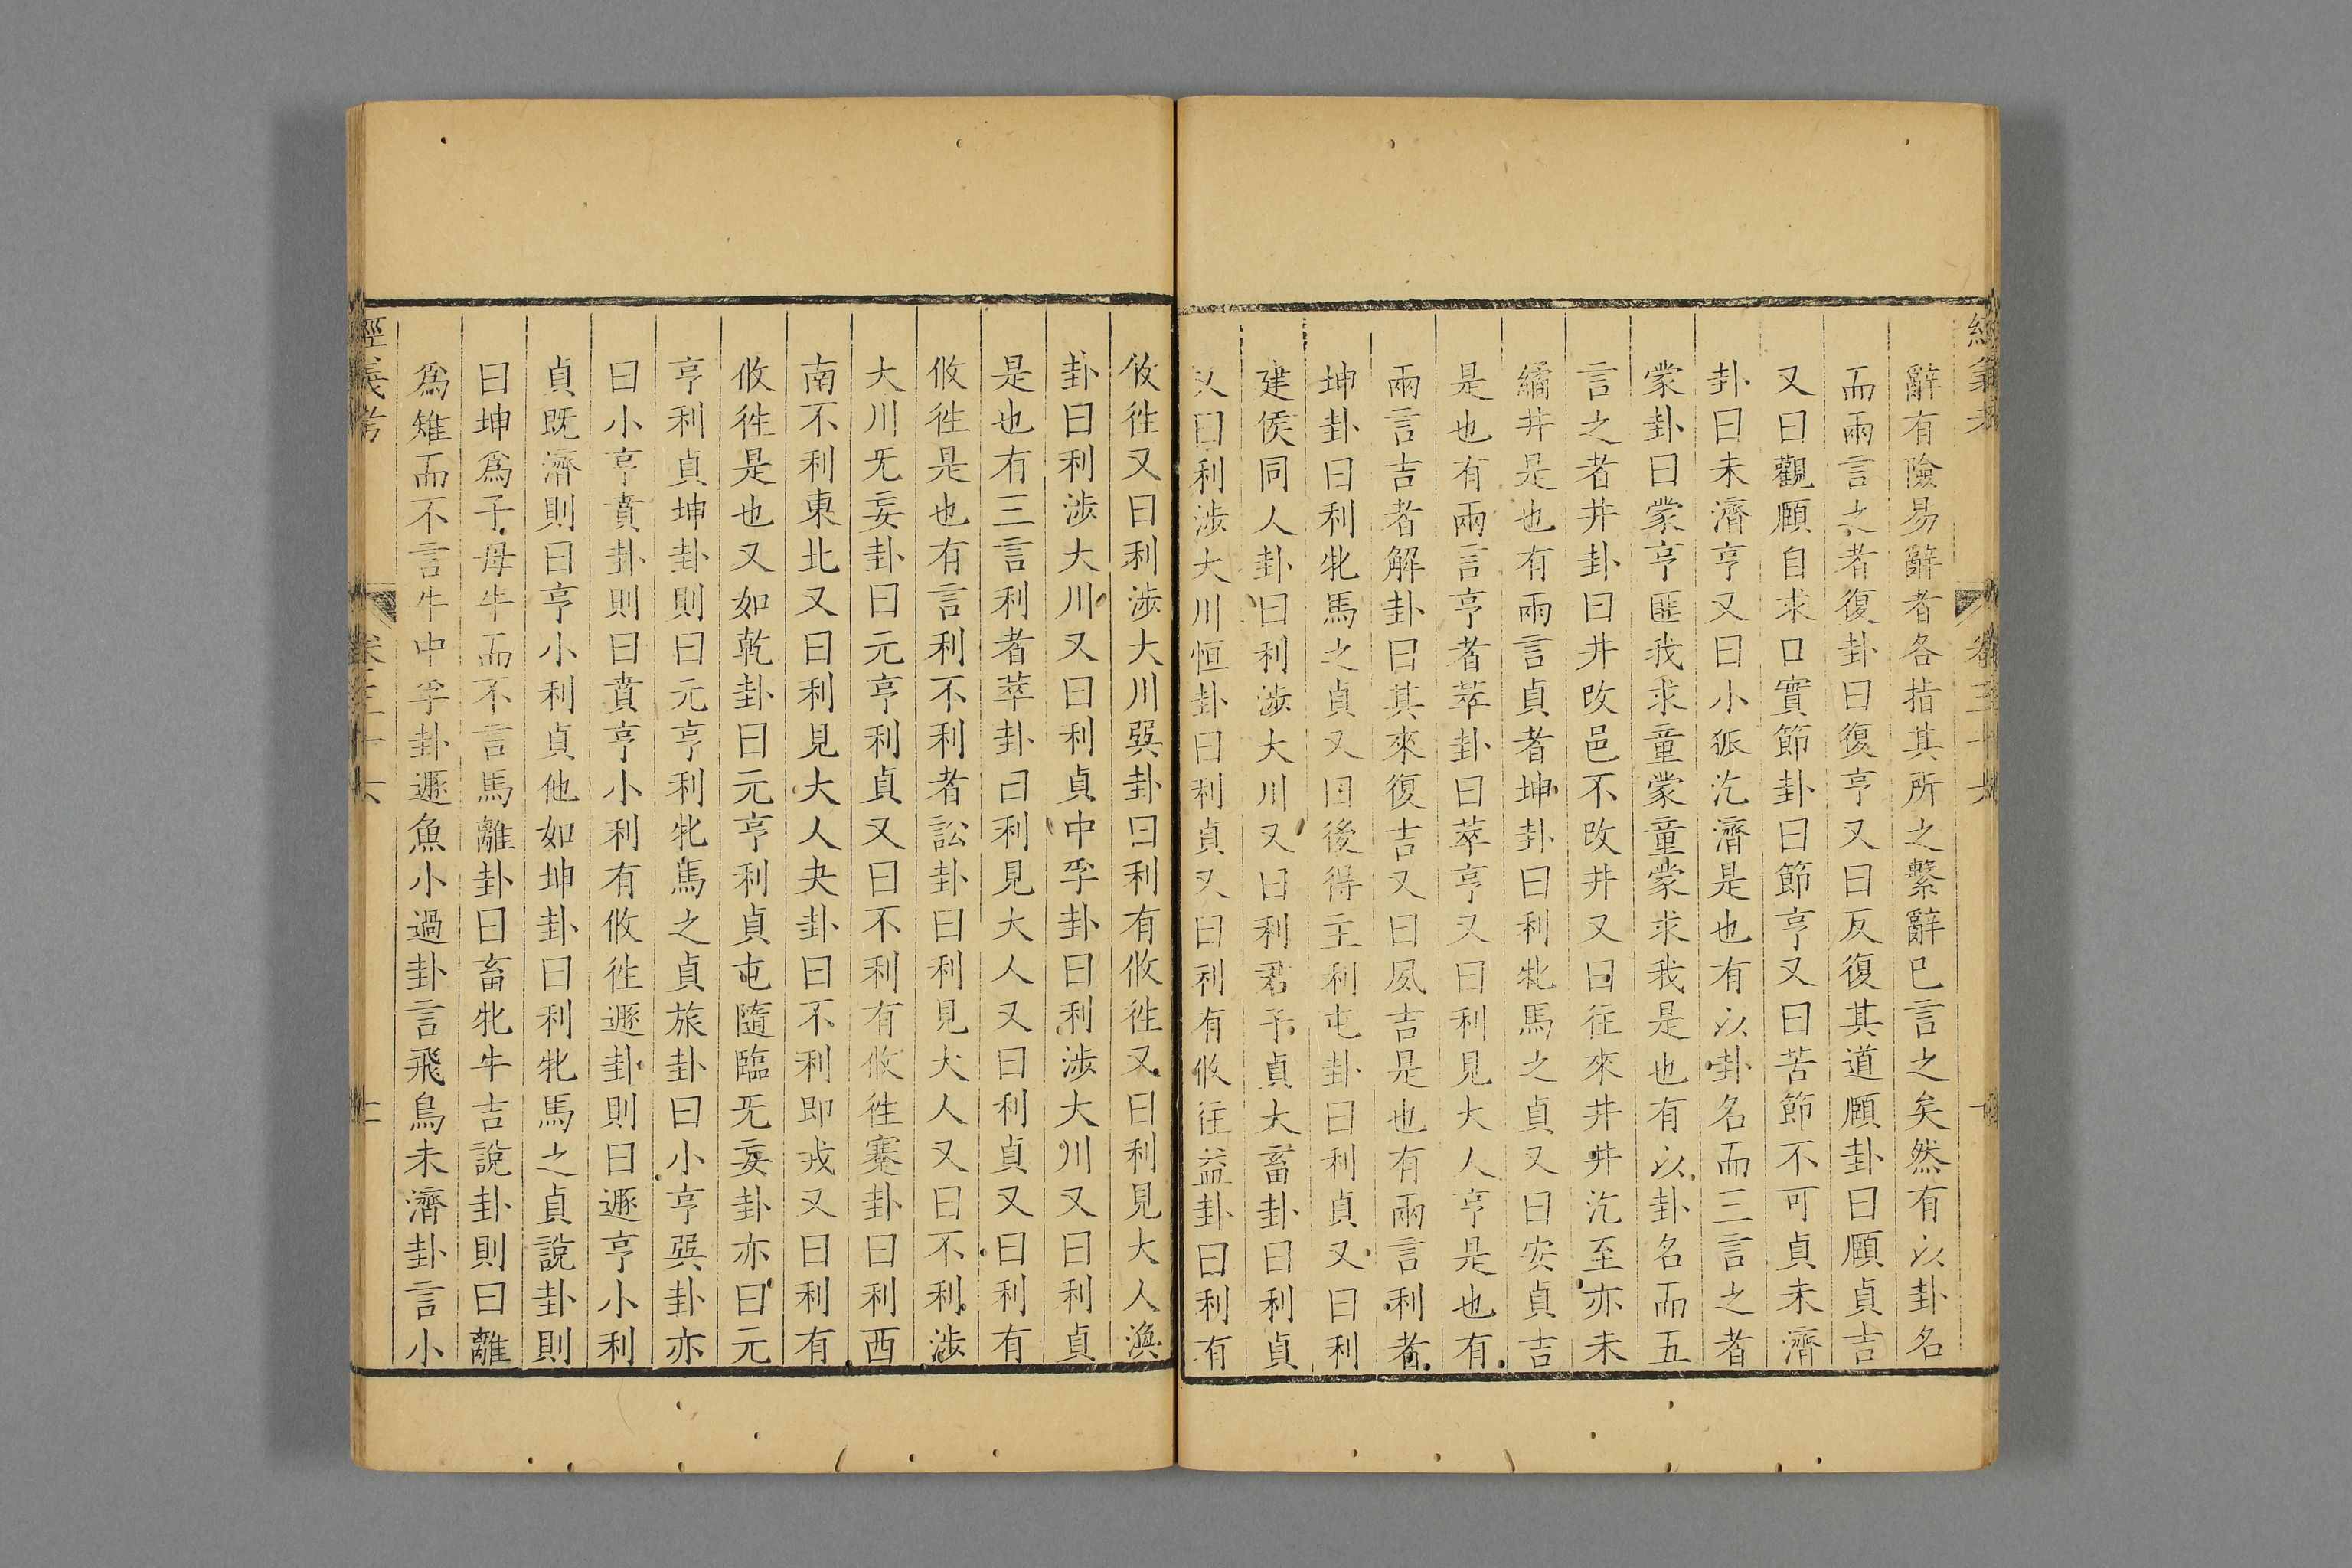 辭有險易辭者各指其所之繫辭已言之矣然有以卦名
而兩言之者復卦曰復亨又曰反復其道頤卦曰頤貞吉
又曰觀頤自求口實節卦曰節亨又曰苦節不可貞未濟
卦曰未濟亨又曰小狐汔濟是也有以卦名而三言之者
蒙卦曰蒙亨匪我求童蒙童蒙求我是也有以卦名而五
言之者井卦曰井改邑不改井又曰往來井井汔至亦未
繘井是也有兩言貞者坤卦曰利牝馬之貞又曰安貞吉
是也有兩言亨者萃卦曰萃亨又曰利見大人亨是也有
兩言吉者解卦曰其來復吉又曰夙吉是也有兩言利者
坤卦曰利牝馬之貞又曰後得主利屯卦曰利貞又曰利
建侯同人卦曰利涉大川又曰利君子貞大畜卦曰利貞
又曰利涉大川恒卦曰利貞又曰利有攸往益卦曰利有
攸徃又曰利涉大川巽卦曰利有攸徃又曰利見大人渙
卦曰利涉大川又曰利貞中孚卦曰利涉大川又曰利貞
是也有三言利者萃卦曰利見大人又曰利貞又曰利有
攸徃是也有言利不利者訟卦曰利見大人又曰不利涉
大川旡妄卦曰元亨利貞又曰不利有攸徃蹇卦曰利西
南不利東北又曰利見大人夬卦曰不利即戎又曰利有
攸徃是也又如乾卦曰元亨利貞屯隨臨旡妄卦亦曰元
亨利貞坤卦則曰元亨利牝馬之貞旅卦曰小亨巽卦亦
曰小亨賁卦則曰賁亨小利有攸徃遯卦則曰遯亨小利
貞既濟則曰亨小利貞他如坤卦曰利牝馬之貞說卦則
曰坤爲子母牛而不言馬離卦曰畜牝牛吉說卦則曰離
爲雉而不言牛中孚卦遯魚小過卦言飛鳥未濟卦言小
經義考
卷三十六